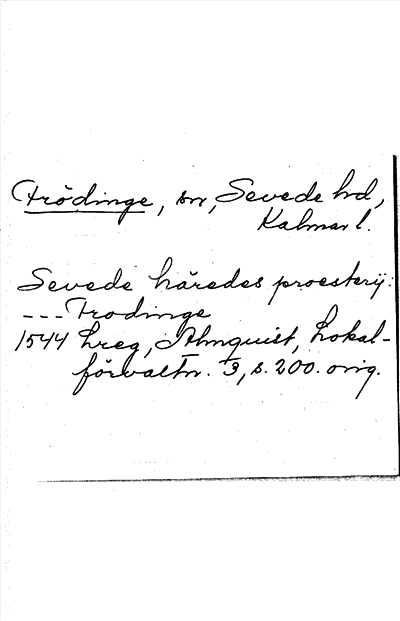 Frödinge, sn, Sevede hd,
Kalmar l.
Sevede häredes proesterij:
---Frodinge
1544 Lreg, Almquist, Lokal-
förvaltn. I3, s. 200. orig.